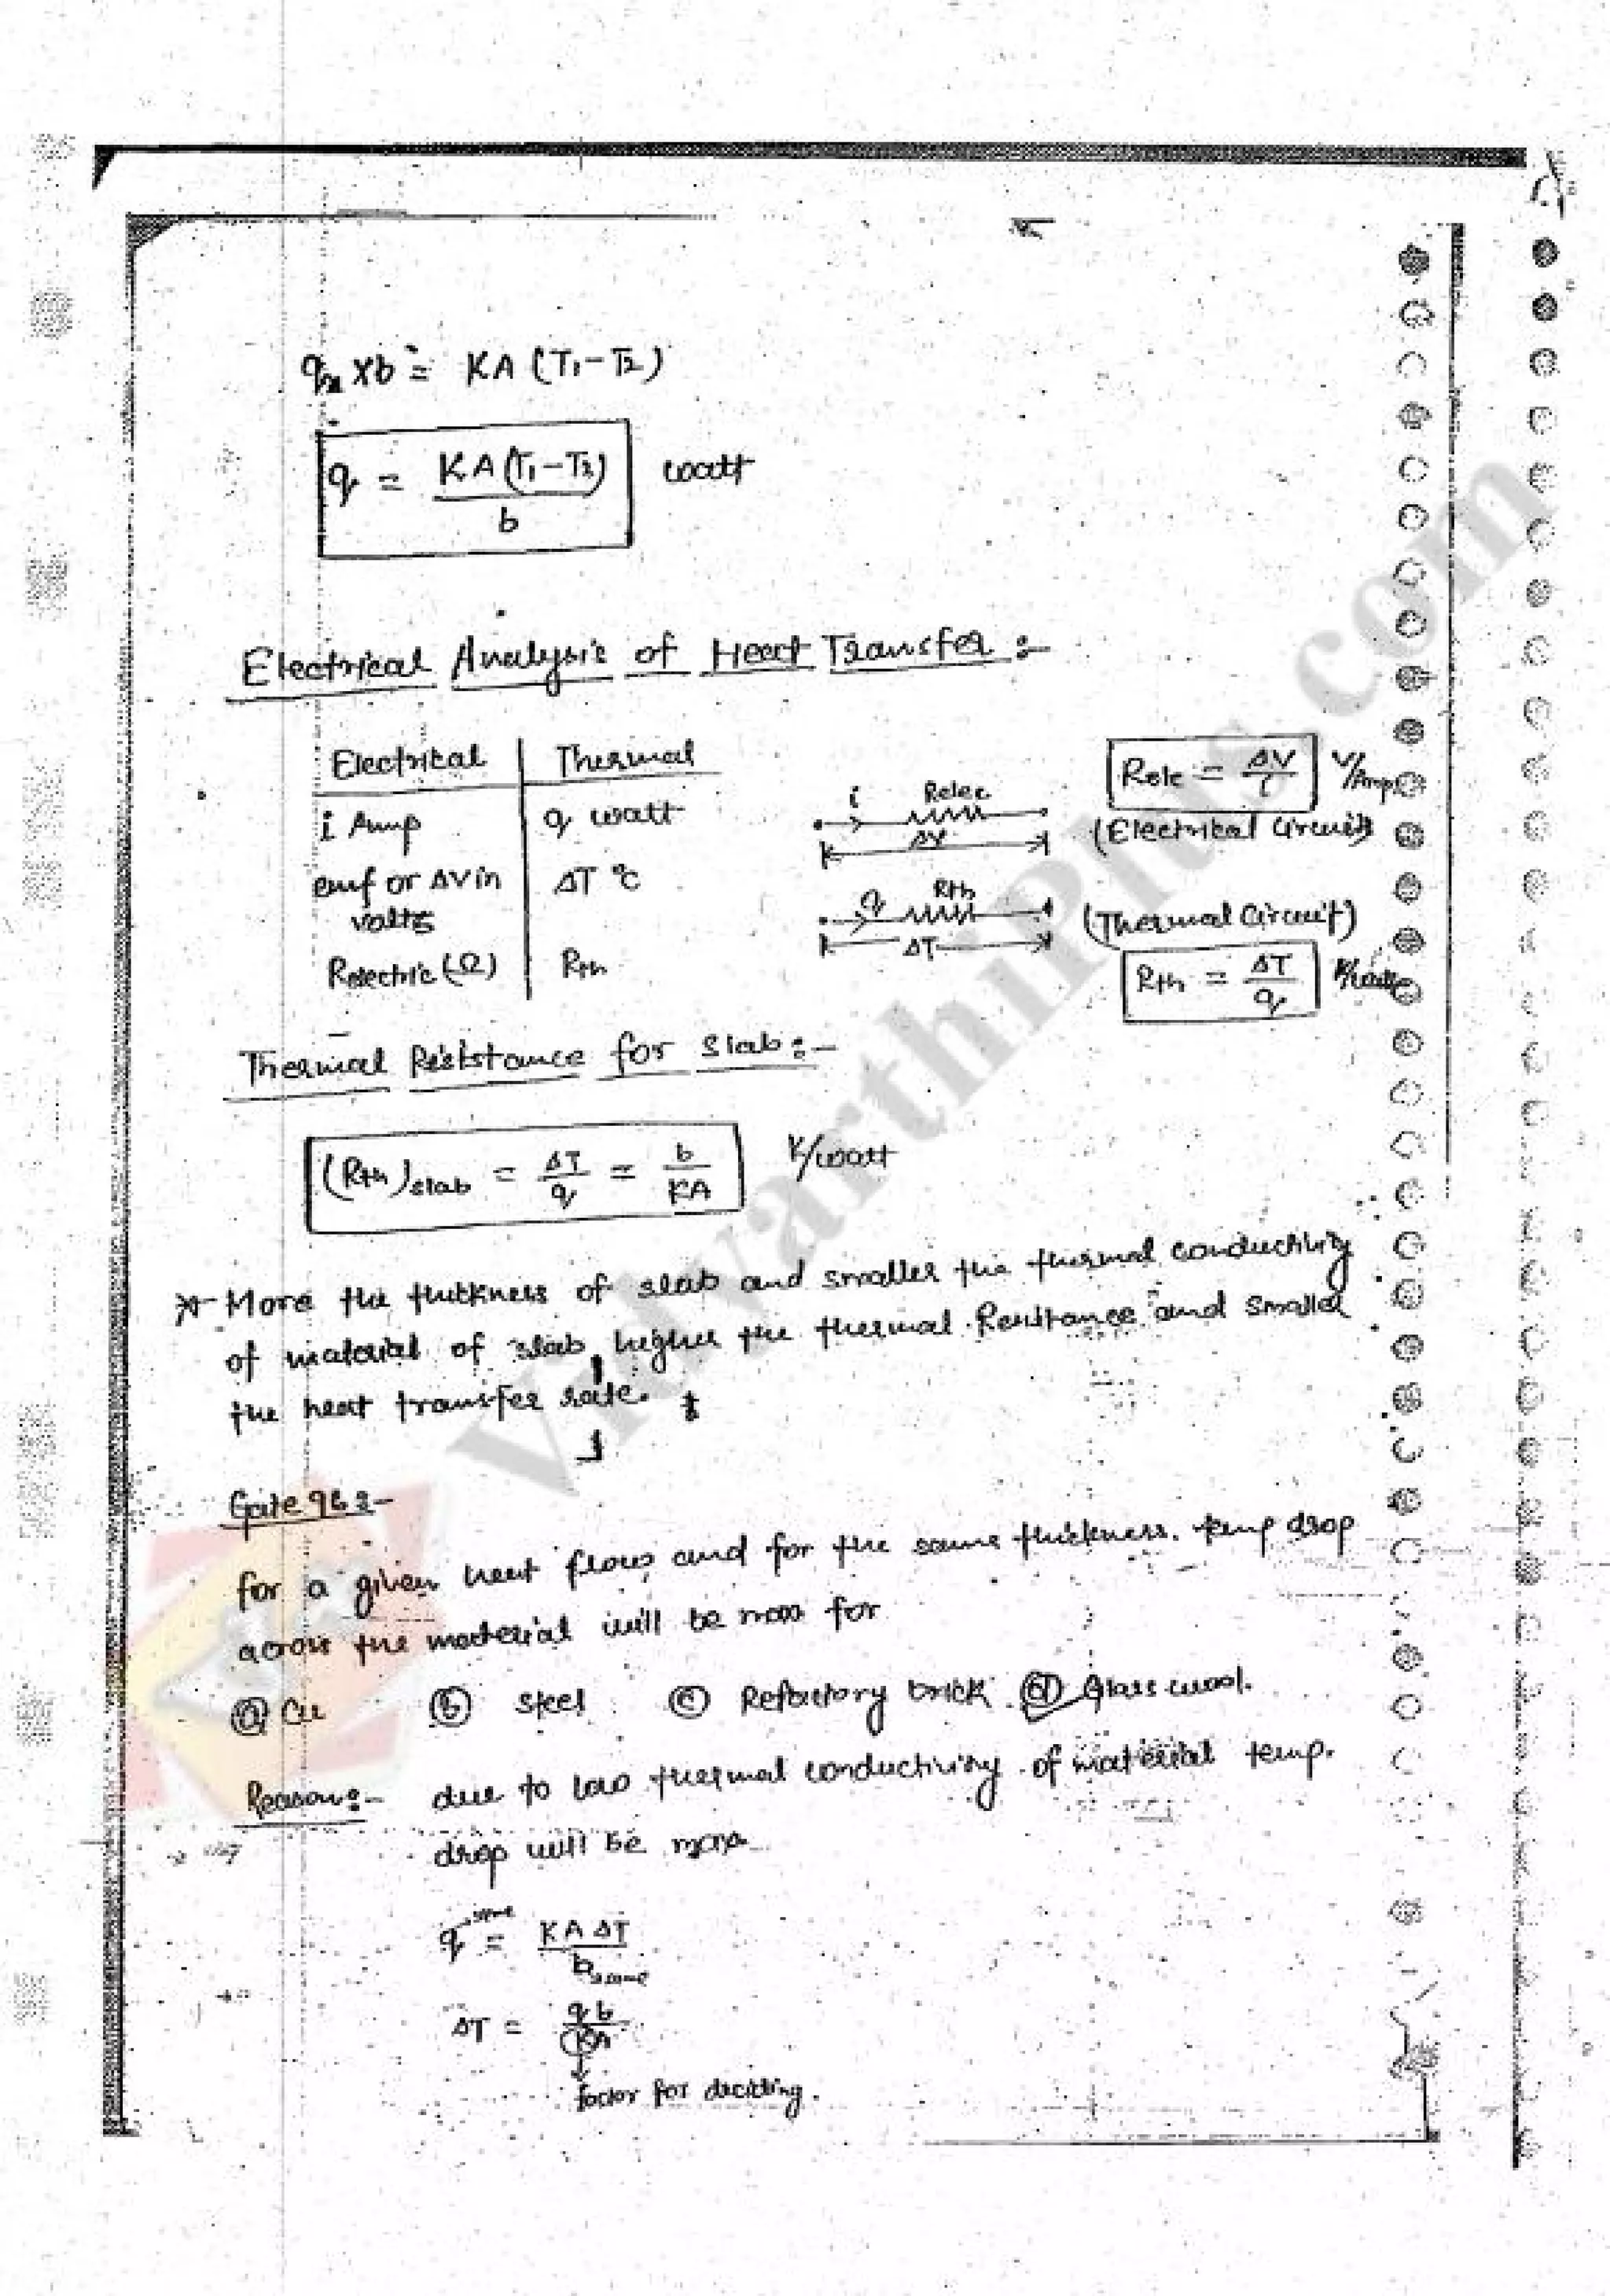 qx × b = KA (T1 - T2)
q = KA(T1 - T2) / b watt
Electrical Analysis of Heat Transfer :-
Electrical | Thermal
i Amp | q watt
emf or ΔV in volts | ΔT °C
Relectric (Ω) | Rth
i Relec
ΔV
Rele = ΔV / i V/Amp
(Electrical Circuit)
q Rth
ΔT
(Thermal Circuit)
Rth = ΔT / q K/watt
Thermal Resistance for Slab :-
(Rth)slab = ΔT / q = b / KA K/watt
* More the thickness of slab and smaller the thermal conductivity
of material of slab, higher the thermal Resistance and smaller
the heat transfer rate.
Gate 96 :-
for a given heat flow and for the same thickness. temp drop
across the material will be max for
(a) Cu (b) steel (c) Refractory brick (d) Glass wool.
Reason :- due to low thermal conductivity of material temp.
drop will be max
q same = KA ΔT / b same
ΔT = qb / KA
factor for deciding.
VidyarthiPlus.com